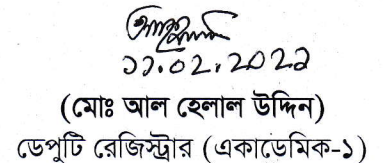 ১১.০২.২০২১
(মোঃ আল হেলাল উদ্দিন)
ডেপুটি রেজিস্ট্রার (একাডেমিক-১)